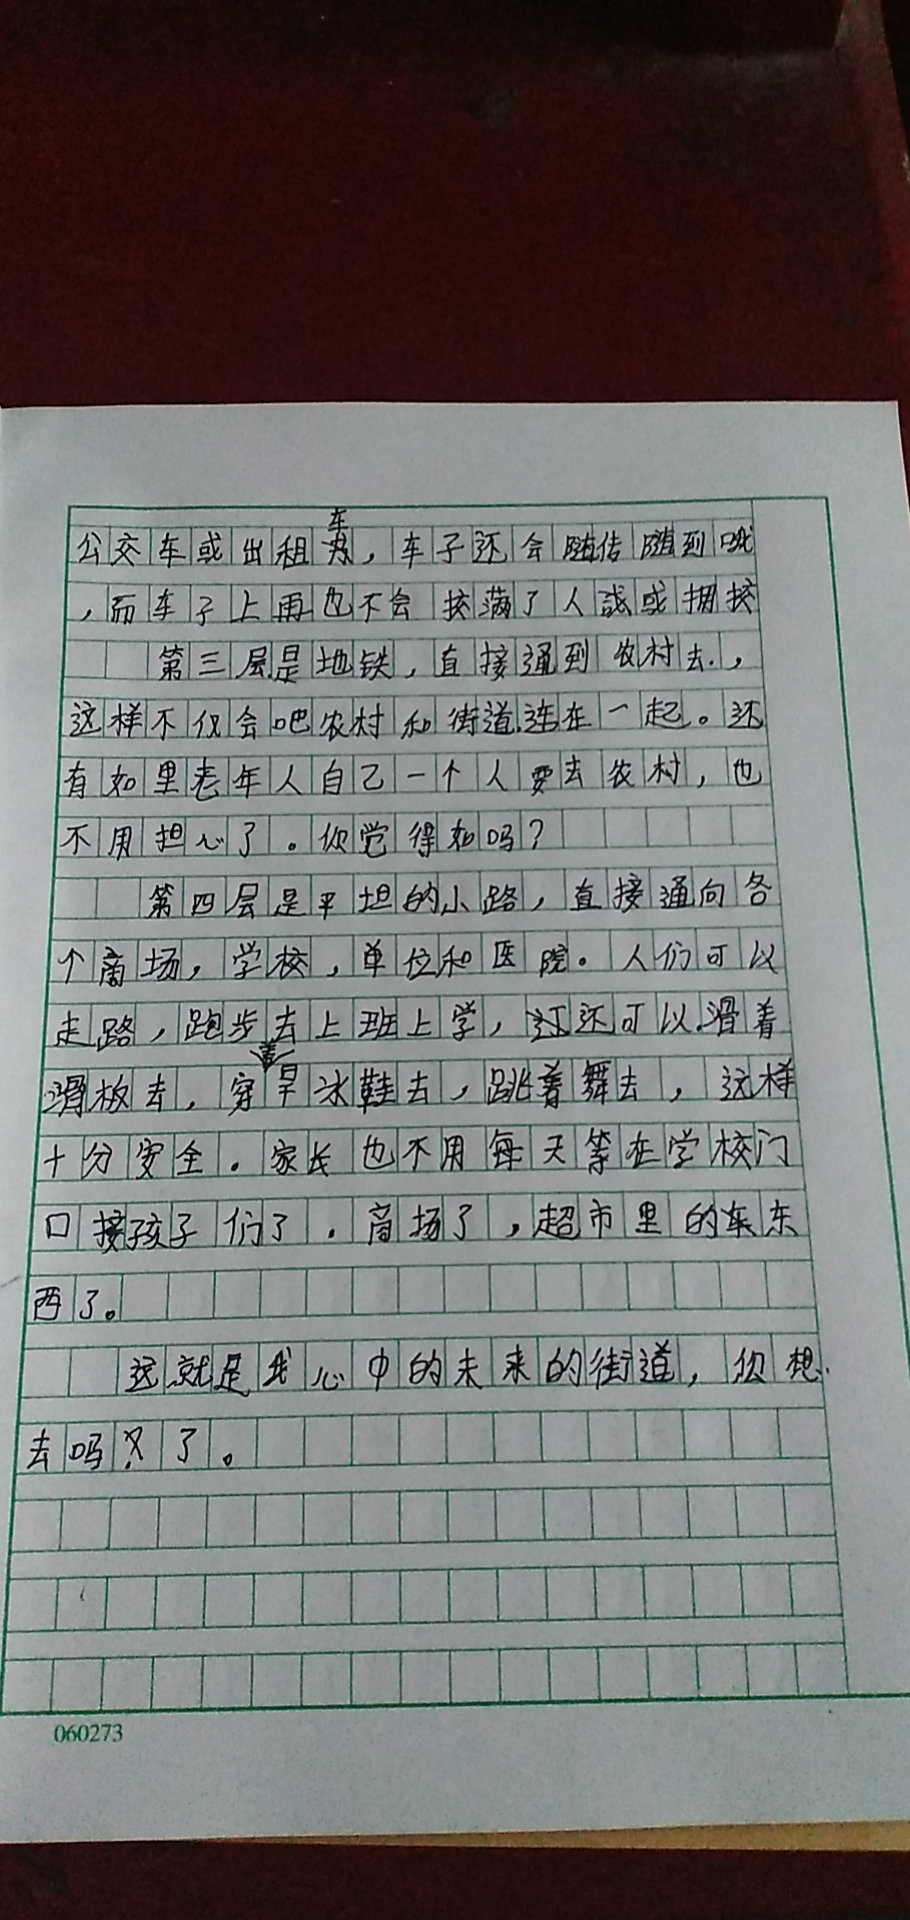 公交车或出租车，车子还会随传随到哦
，而车子上再也不会挤满了人或拥挤
第三层是地铁，直接通到农村去，
这样不仅会吧农村和街道连在一起。还
有如里老年人自己一个人要去农村，也
不用担心了。你觉得如吗？
第四层是平坦的小路，直接通向各
个商场，学校，单位和医院。人们可以
走路，跑步去上班上学，还可以滑着
滑板去，穿着旱冰鞋去，跳着舞去，这样
十分安全。家长也不用每天等在学校门
口接孩子们了。商场了，超市里的东
西了。
这就是我心中的未来的街道，你想
去吗？了。
060273